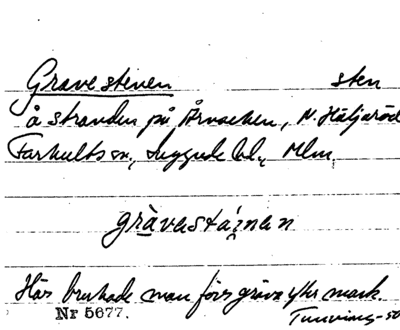 Gravestenen sten
å stranden på Årnacken, N. Häljaröd
Farhults sn, Luggude hd, Mlm.
grävastainen
Här brukade man förr gräva
Nr 5677.